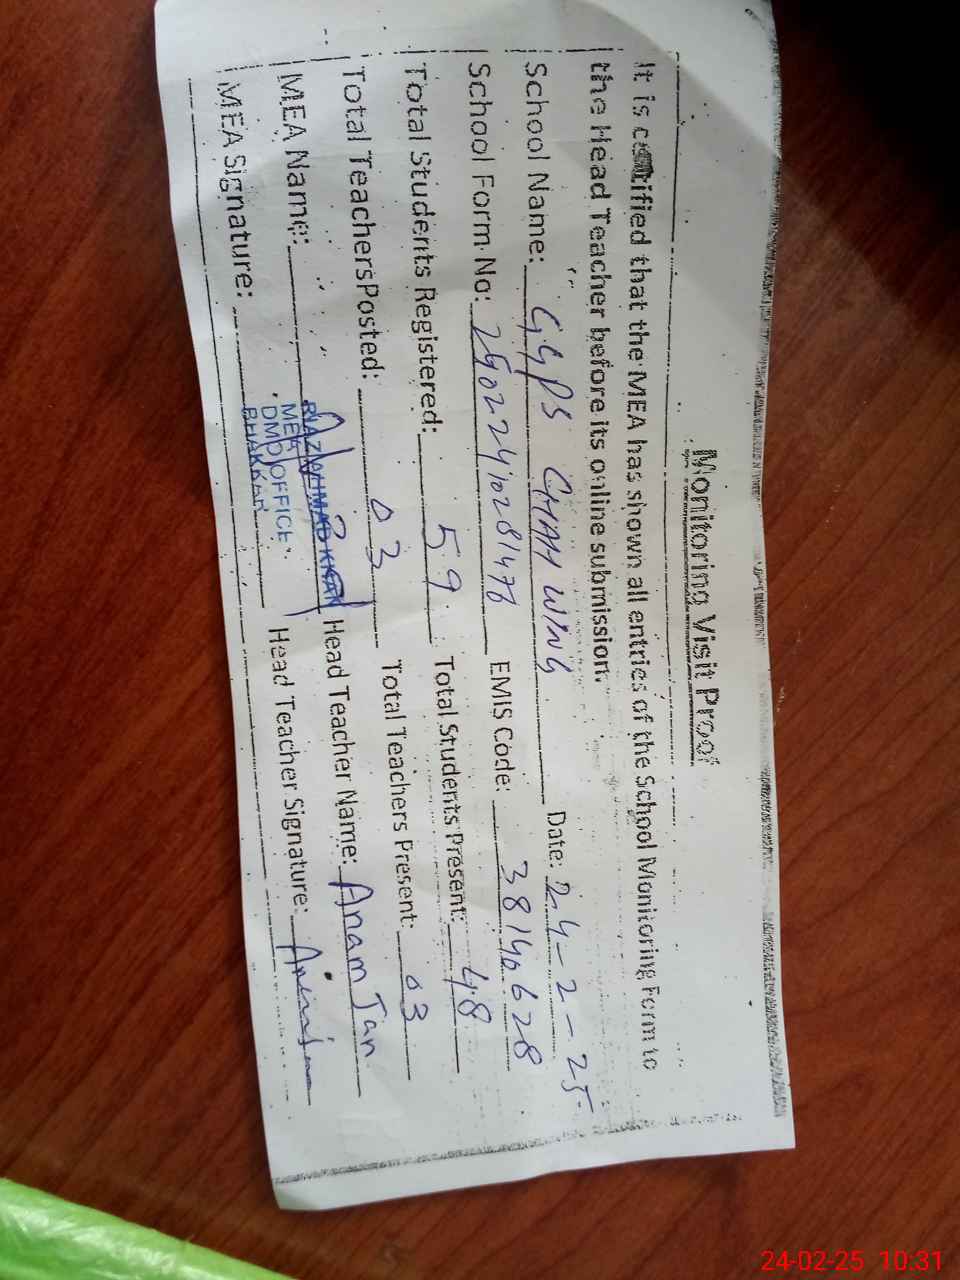 Monitoring Visit Proof
It is certified that the MEA has shown all entries of the School Monitoring Form to
the Head Teacher before its online submission.
School Name: GGPS CHAH WING Date: 24-2-25
School Form No: EMIS Code: 38140628
Total Students Registered: 59 Total Students Present: 48
Total Teachers Posted: 03 Total Teachers Present: 03
MEA Name: RIAZ AHMAD KHAN Head Teacher Name: Anam Jan
MEA
DMO OFFICE
BHAKKAR
MEA Signature: Head Teacher Signature:
24-02-25 10:31